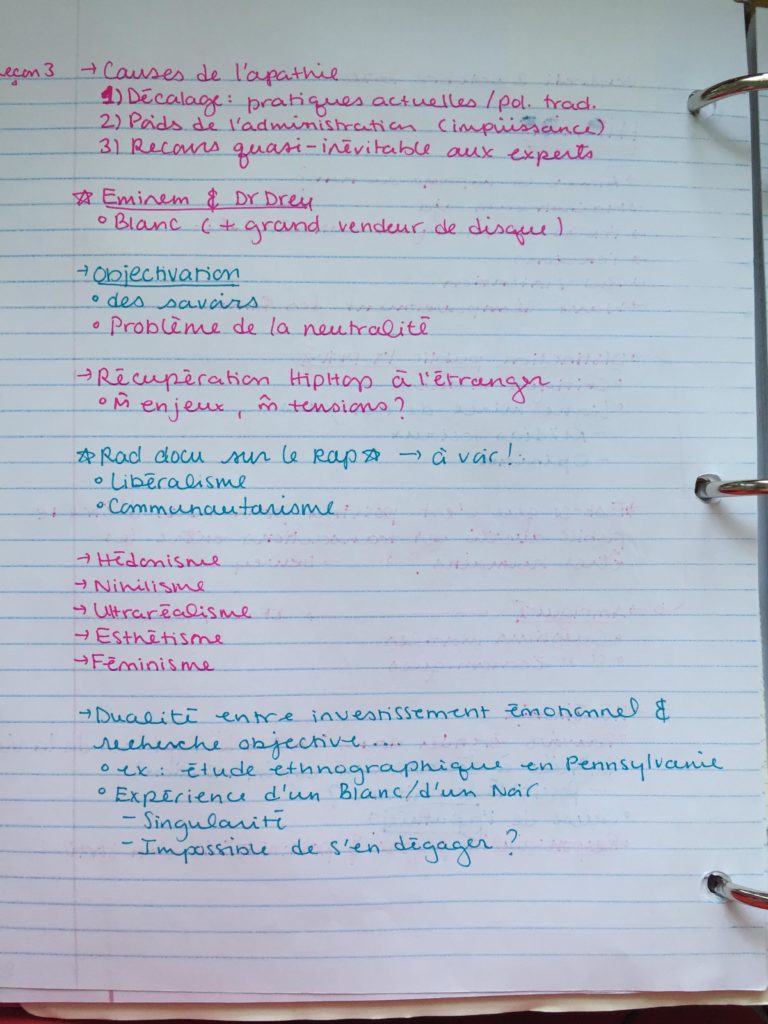 eçon 3 → Causes de l'apathie
1) Décalage : pratiques actuelles / pol. trad.
2) Poids de l'administration (impuissance)
3) Recours quasi-inévitable aux experts
☆ Eminem & Dr Drey
° Blanc (+ grand vendeur de disque)
→ Objectivation
° des savoirs
° Problème de la neutralité
→ Récupération HipHop à l'étranger
° m̂ enjeux, m̂ tensions ?
☆ Rad docu sur le Rap ☆ → à voir !
° Libéralisme
° Communautarisme
→ Hédonisme
→ Nihilisme
→ Ultraréalisme
→ Esthétisme
→ Féminisme
→ Dualité entre investissement émotionnel &
recherche objective...
° ex : étude ethnographique en Pennsylvanie
° Expérience d'un Blanc/d'un Noir
- Singularité
- Impossible de s'en dégager ?